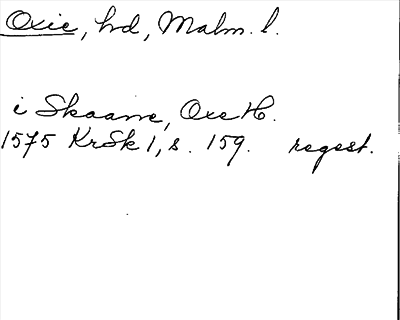 Oxie, hd, Malm. l.
i Skaane, Oxe H.
1575 KrSk 1, s. 159. regest.